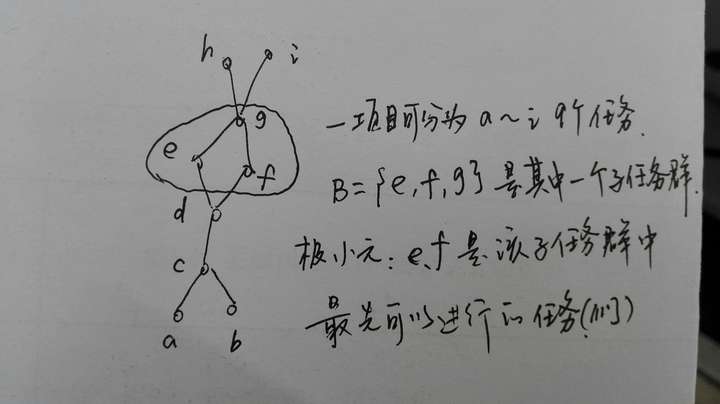 h
i
g
e
f
d
c
a
b
一项目可分为 a～i 9个任务.
B={e,f,g} 是其中一个子任务群.
极小元: e、f 是该子任务群中
最先可以进行的任务(们)